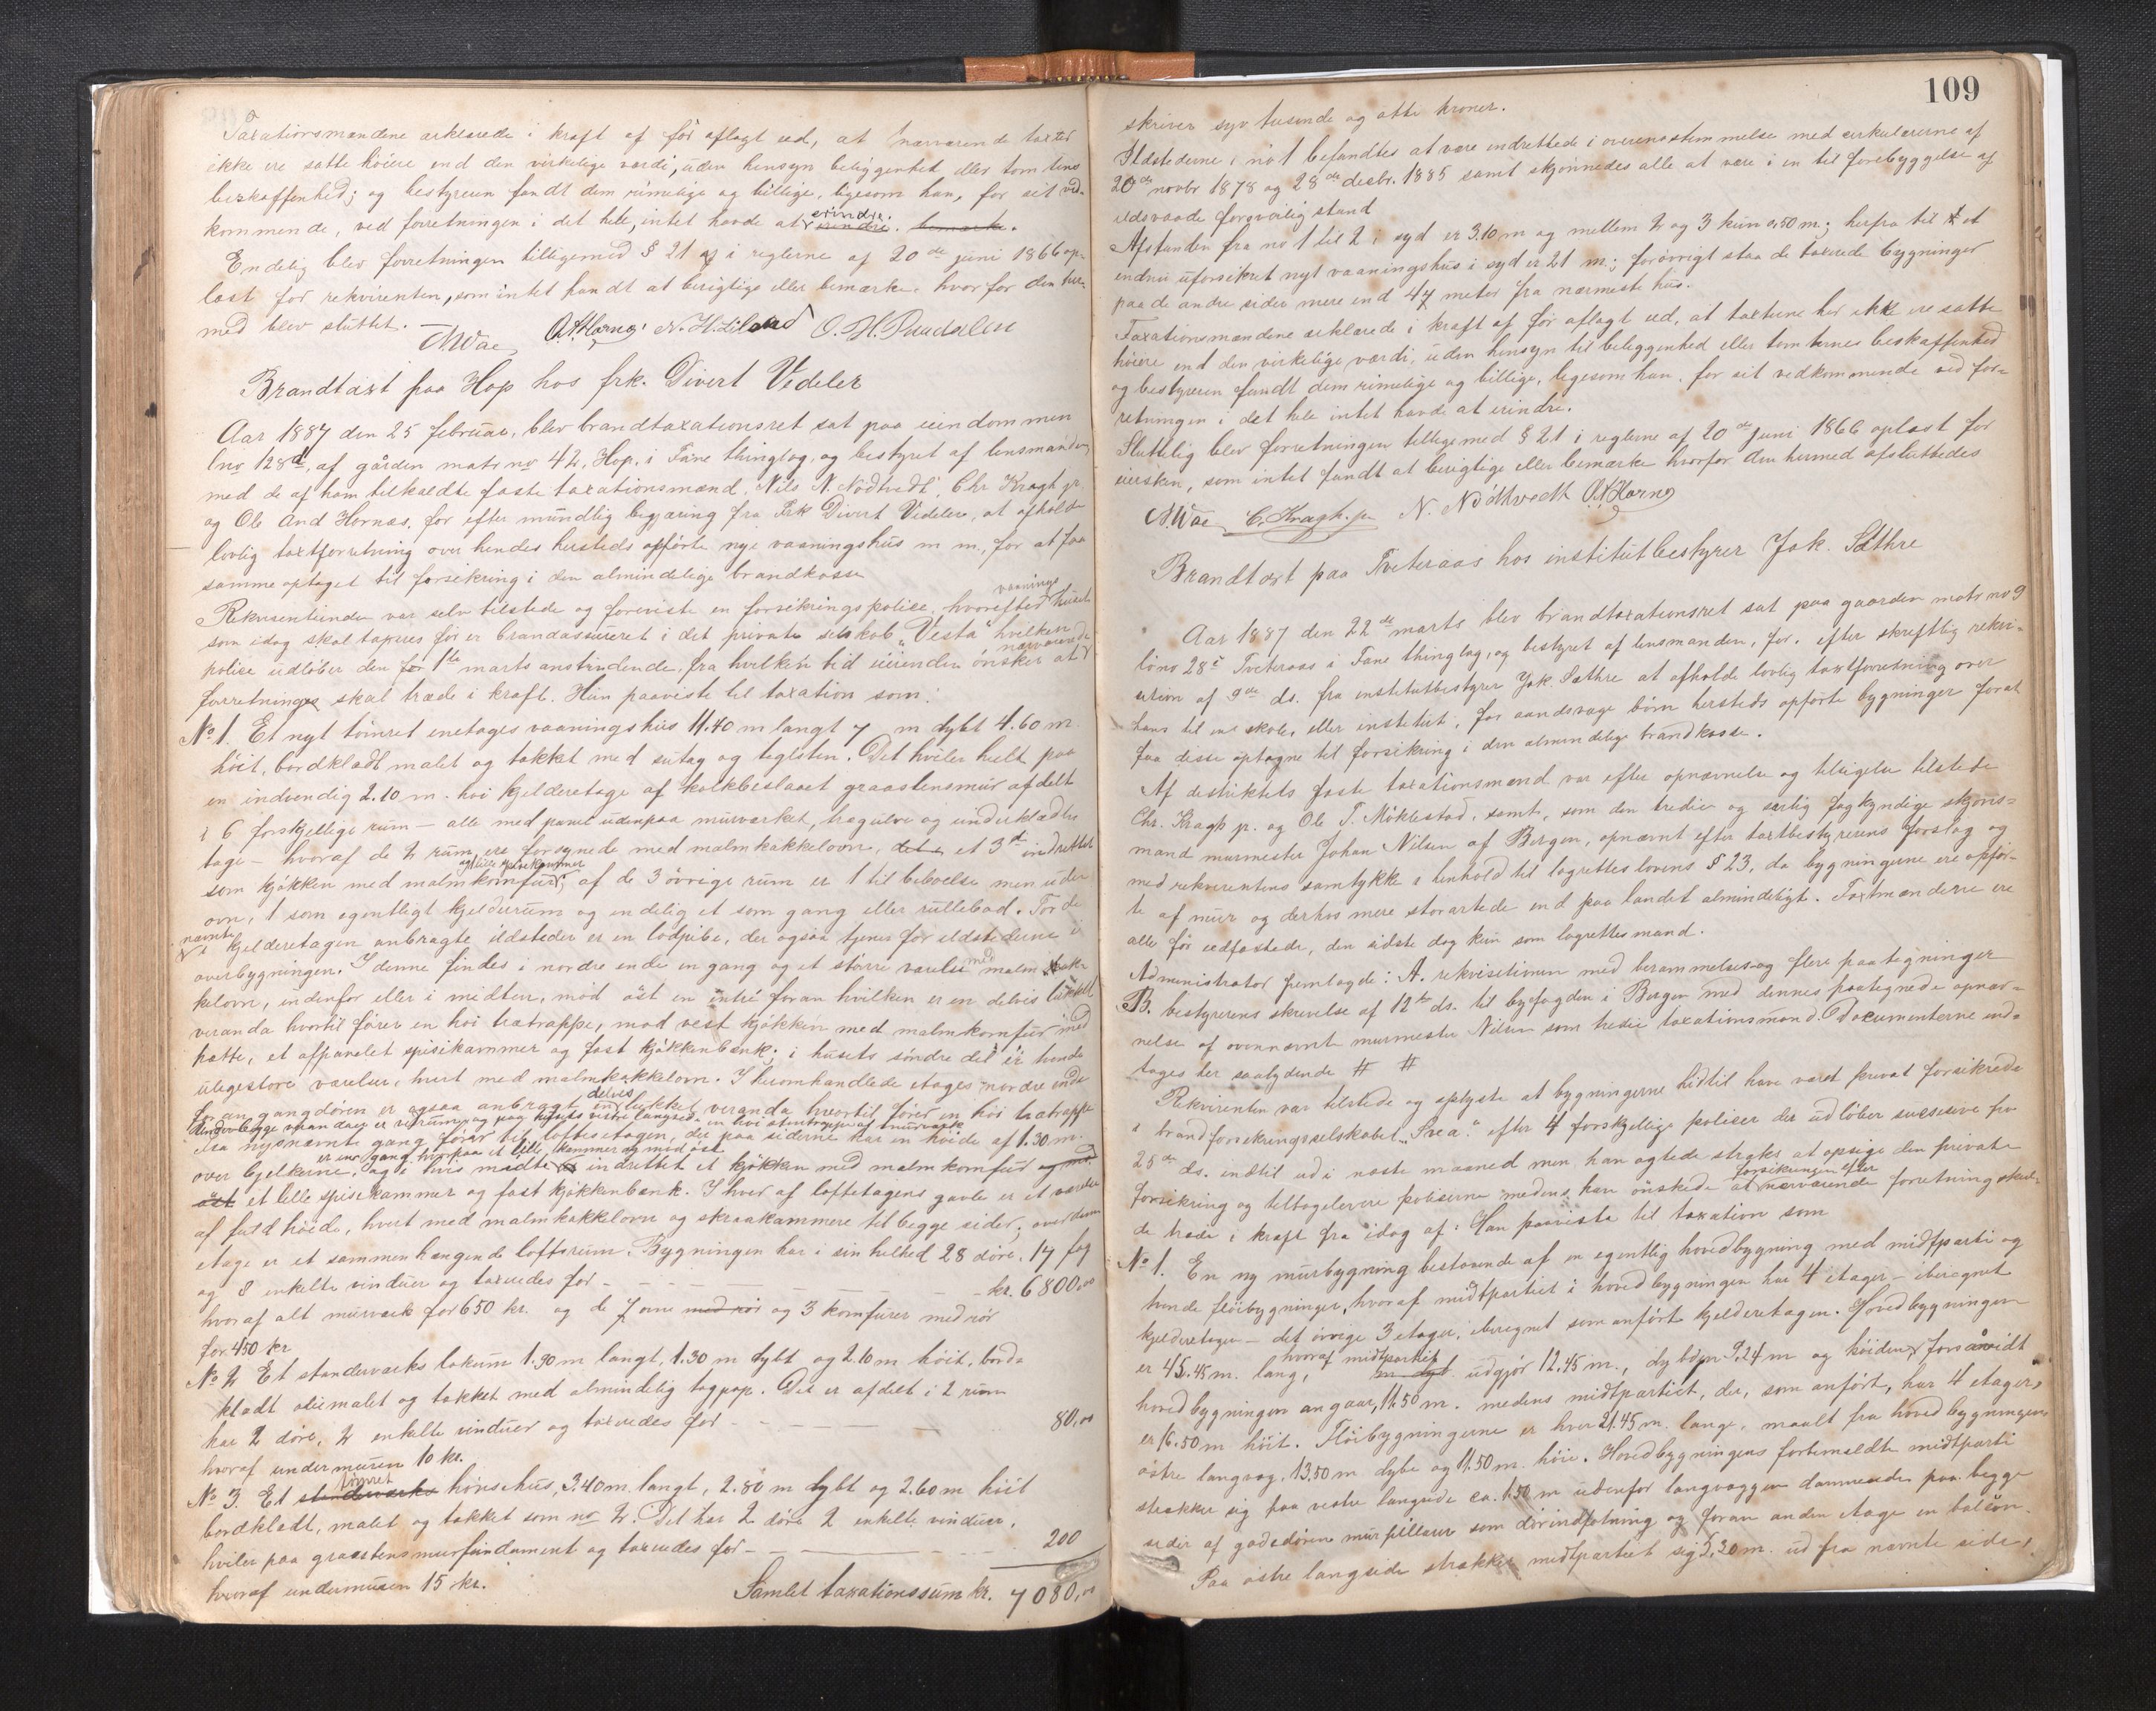 Taxationsmændene erklærede i kraft af før aflagt ed, at nærværende taxter
ikke ere satte høiere end den virkelige værdi, uden hensyn beliggenhet eller tomtens
beskaffenhed; og bestyreren fandt dem rimelige og billige, ligesom han, for sit ved-
kommende, ved forretningen i det hele, intet havde at erindre.
Endelig blev forretningen tilligemed § 21 i reglerne af 20de juni 1866 op-
læst for rekvirenten, som intet fandt at berigtige eller bemærke hvorfor den her-
med blev sluttet.
Brandtaxt paa Hop hos frk. Divert Vedeler
Aar 1887 den 25 februar, blev brandtaxationsret sat paa eiendommen
lno 128d, af gården matr no 42, Hop, i Fane thinglag, og bestyret af lensmanden
med de af ham tilkaldte faste taxationsmænd, Nils N. Nødtvedt, Chr Kragh jr
og Ole And Hornæs, for efter mundlig begjæring fra Frk Divert Vedeler, at afholde
lovlig taxtforretning over hendes hersteds opførte nye vaaningshus m m, for at faa
samme optaget til forsikring i den almindelige brandkasse
Rekvirentinden var selv tilstede og foreviste en forsikringspolise, hvorefter vaanings huset
som idag skal taxeres før er brandassureret i det private selskab "Vesta" hvilken
polise udløber den 1ste marts anstundende, fra hvilken tid eierinden ønsker at nærværende
forretninges skal træde i kraft. Hun paaviste til taxation som:
No 1. Et nyt tømret enetages vaaningshus 11.40 m langt 7 m dybt 4.60 m
høit, bordklædt malet og takket med sutag og teglsten. Det hviler helt paa
en indvendig 2.10 m. høi kjelderetage af kalkbeslaaet graastensmur afdelt
i 6 forskjellige rum – alle med panel udenpaa murværket, trægulve og underklædte
tage – hvoraf de 2 rum ere forsynede med malmkakkelovne, et 3die indrettet
som kjøkken med malmkomfur og lille spisekammer; af de 3 øvrige rum er 1 til beboelse men uden
ovn, 1 som egentligt kjelderrum og endelig et som gang eller rullebod. For de
nævnte i kjelderetagen anbragte ildsteder er en lødpibe, der ogsaa tjener for ildstederne i
overbygningen. I denne findes i nordre ende en gang og et større værelse med malm kak-
kelovn, indenfor eller i midten, mod øst en entré foran hvilken er en delvis lukket
veranda hvortil fører en høi trætrappe, mod vest kjøkken med malmkomfur med
hætte, et afpanelet spisekammer og fast kjøkkenbænk; i husets søndre del er tvende
uligestore værelser, hvert med malmkakkelovn. I heromhandlede etages nordre ende
foran gangdøren er ogsaa anbragt en delvis lukket veranda hvortil fører en høi trætrappe
Under begge verandaer er redrum og paa husets vestre langside en høi stentrappe af murværk
Fra nysnævnte gang fører til loftsetagen, der paa siderne har en høide af 1.30 m.
over bjelkerne, er en gang hvorpaa et lille kammer og mod øst og i hvis midte indrettet et kjøkken med malmkomfur
et lille spisekammer og fast kjøkkenbænk. I hver af loftetagens gavle er et værelse
af fuld høide, hvert med malmkakkelovn og skraakammere til begge sider; over denne
etage er et sammenhængende loftsrum. Bygningen har i sin helhed 28 døre, 17 fag
og 8 enkelte vinduer og taxeredes for - - - kr. 6800,00
hvoraf alt murværk for 650 kr. og de 7 ovne med rør og 3 komfurer med rør
for 450 kr
No 2 Et standerværks lokum 1.90 m langt, 1.30 m dybt og 2.10 m høit, bord-
klædt oliemalet og takket med almindelig tagpap. Det er afdelt i 2 rum
har 2 døre, 2 enkelte vinduer og taxeredes for - - - 80,00
hvoraf undermuren 10 kr.
No 3. Et tømret hønsehus, 3.40 m. langt, 2.80 m dybt og 2.60 m høit
bordklædt, malet og takket som no 2. Det har 2 døre 2 enkelte vinduer,
hviler paa graastensmurfundament og taxeredes for - - - 200
hvoraf undermuren 15 kr.
Samlet taxationssum kr. 7080,00
109
skriver syv tusende og otti kroner.
Ildstederne i no 1 befandtes at være indrettede i overensstemmelse med cirkulærerne af
20de novbr 1878 og 28de decbr. 1885 samt skjønnedes alle at være i en til forebyggelse af
ildsvaade forsvarlig stand
Afstanden fra no 1 til 2 i syd er 3.10 m og mellem 2 og 3 kun 0,50 m; herfra til et
endnu uforsikret nyt vaaningshus i syd er 21 m.; forøvrigt staa de taxerede bygninger
paa de andre sider mere end 47 meter fra nærmeste hus.
Taxationsmændene erklærede i kraft af før aflagt ed, at taxterne her ikke ere satte
høiere end den virkelige værdi, uden hensyn til beliggenhed eller tomternes beskaffenhed
og bestyreren fandt dem rimelige og billige, ligesom han, for sit vedkommende ved for-
retningen i det hele intet havde at erindre.
Sluttelig blev forretningen tilligemed § 21 i reglerne af 20de juni 1866 oplæst for
eiersken, som intet fandt at berigtige eller bemærke hvorfor den hermed afsluttedes
C. Kragh. jr N. Nødtvedt
Brandtaxt paa Tveteraas hos institutbestyrer Jak. Sæthre
Aar 1887 den 22de marts blev brandtaxationsret sat paa gaarden matr no 9
løno 28c Tveteraas i Fane thinglag, og bestyret af lensmanden, for, efter skriftlig rekvi-
sition af 9de ds. fra institutbestyrer Jak. Sæthre at afholde lovlig taxtforretning over
hans til en skole, eller institut, for aandssvage børn hersteds opførte bygninger forat
faa disse optagne til forsikring i den almindelige brandkasse.
Af distriktets faste taxationsmænd var efter opnævnelse og tilsigelse tilstede
Chr. Kragh jr. og Ole T. Møklestad, samt, som den tredie og særlig fagkyndige skjøns-
mand murmester Johan Nilsen af Bergen, opnævnt efter taxtbestyrerens forslag og
med rekvirentens samtykke i henhold til lagretteslovens § 23, da bygningerne ere opfør-
te af mur og derhos mere storartede end paa landet almindeligt. Taxtmændene ere
alle før eedfæstede, den sidste dog kun som lagrettesmand.
Administrator fremlagde: A. rekvisitionen med berammelses- og flere paategninger
B. bestyrerens skrivelse af 12te ds. til byfogden i Bergen med dennes paategnede opnæv-
nelse af ovennævnte murmester Nilsen som tredie taxationsmand. Documenterne ind-
tages her saalydende # #
Rekvirenten var tilstede og oplyste at bygningerne hidtil have været privat forsikrede
i brandforsikringsselskabet "Svea" efter 4 forskjellige poliser der udløber succesive fra
25de ds. indtil ud i næste maaned men han agtede straks at opsige den private
forsikring og tilbagelevere poliserne medens han ønskede at forsikringen efter nærværende forretning skul-
de træde i kraft fra idag af: Han paaviste til taxation som
No 1. En ny murbygning bestaaende af en egentlig hovedbygning med midtparti og
tvende fløibygninger, hvoraf midtpartiet i hovedbygningen har 4 etager – iberegnet
kjelderetagen – det øvrige 3 etager, iberegnet som anført kjelderetagen. Hovedbygningen
er 45.45 m. lang, hvoraf midtpartiet udgjør 12.45 m., dybden 9.24 m og høiden, forsåvidt
hovedbygningen angaar, 11.50 m. medens midtpartiet, der, som anført, har 4 etager,
er 16.50 m høit. Fløibygningerne er hver 21.45 m. lange, maalt fra hovedbygningens
østre langvæg, 13.50 m dybe og 11.50 m. høie. Hovedbygningens formeldte midtparti
strækker sig paa vestre langside ca. 1.50 m udenfor langvæggen dannende paa begge
sider af gadedøren murpillarer som dørindfatning og foran anden etage en balcon.
Paa østre langside strækker midtpartiet sig 5.30 m. ud fra nævnte side,